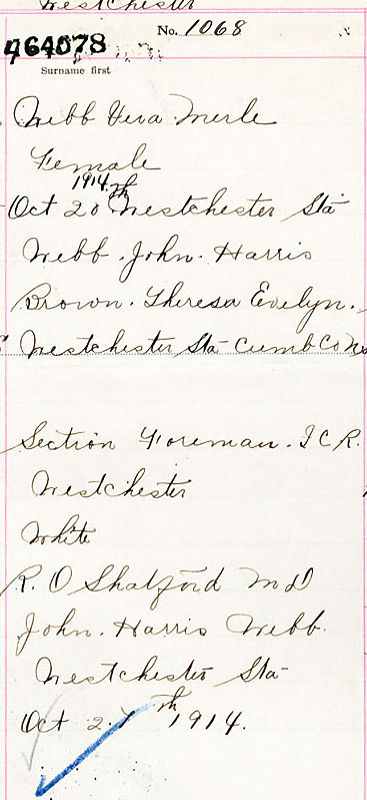 Westchester
No. 1068
464078
Surname first
Webb Vera Merle
Female
1914
Oct 20th Westchester Sta
Webb. John. Harris
Brown. Theresa Evelyn.
Westchester Sta Cumb Co Ns
Section Foreman. I C R.
Westchester
White
R. O Shatford M D
John. Harris Webb.
Westchester Sta
Oct 27th 1914.